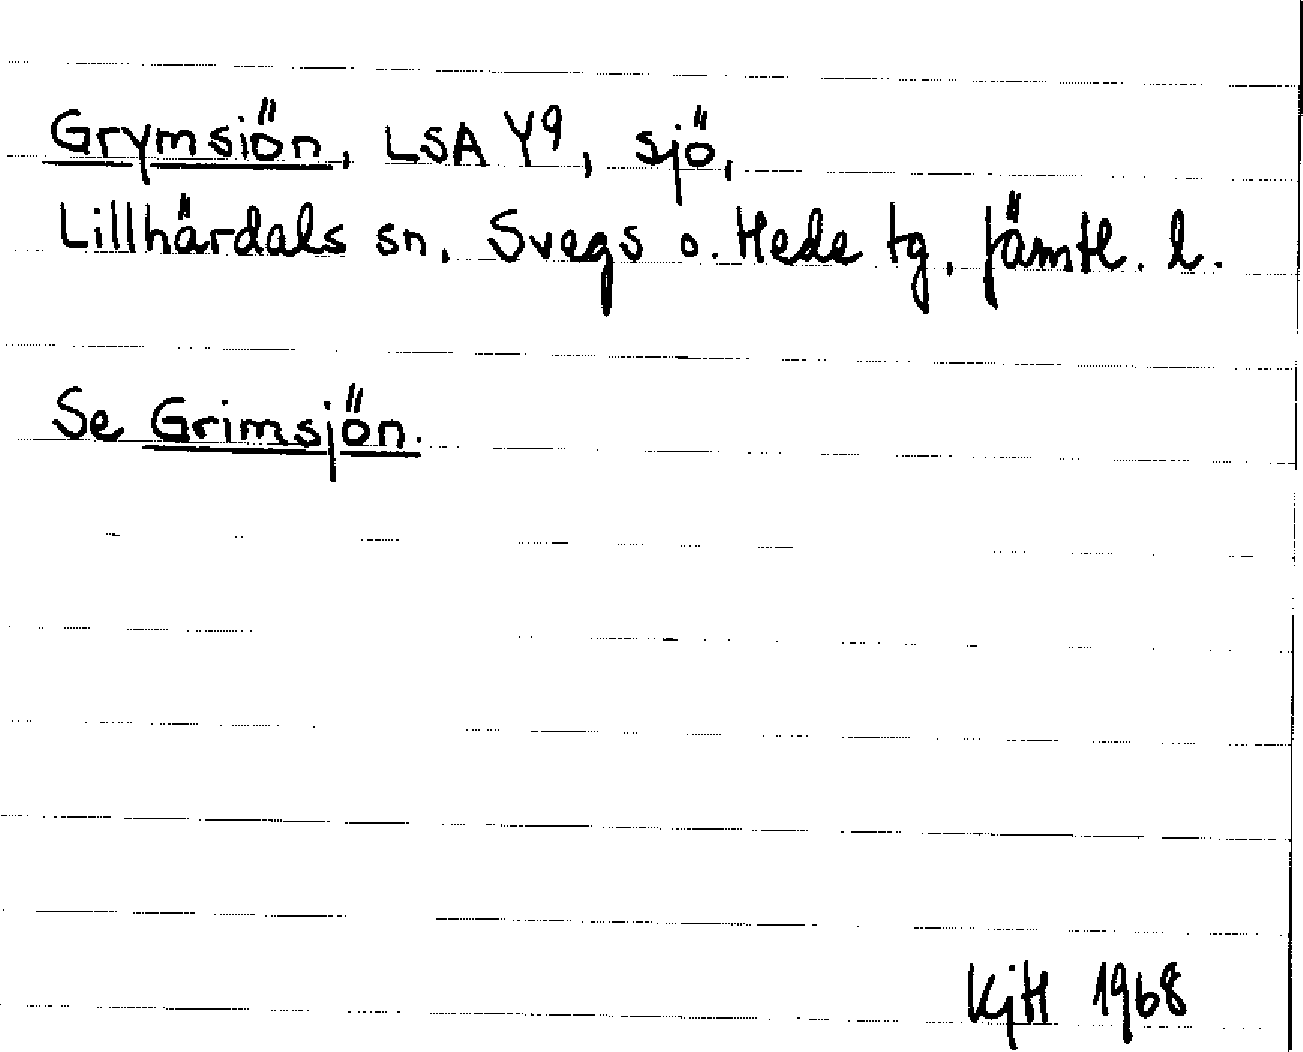 Grymsiön, LSA Y9, sjö,
Lillhärdals sn, Svegs o. Hede tg, Jämtl. l.
Se Grimsjön.
KjH 1968